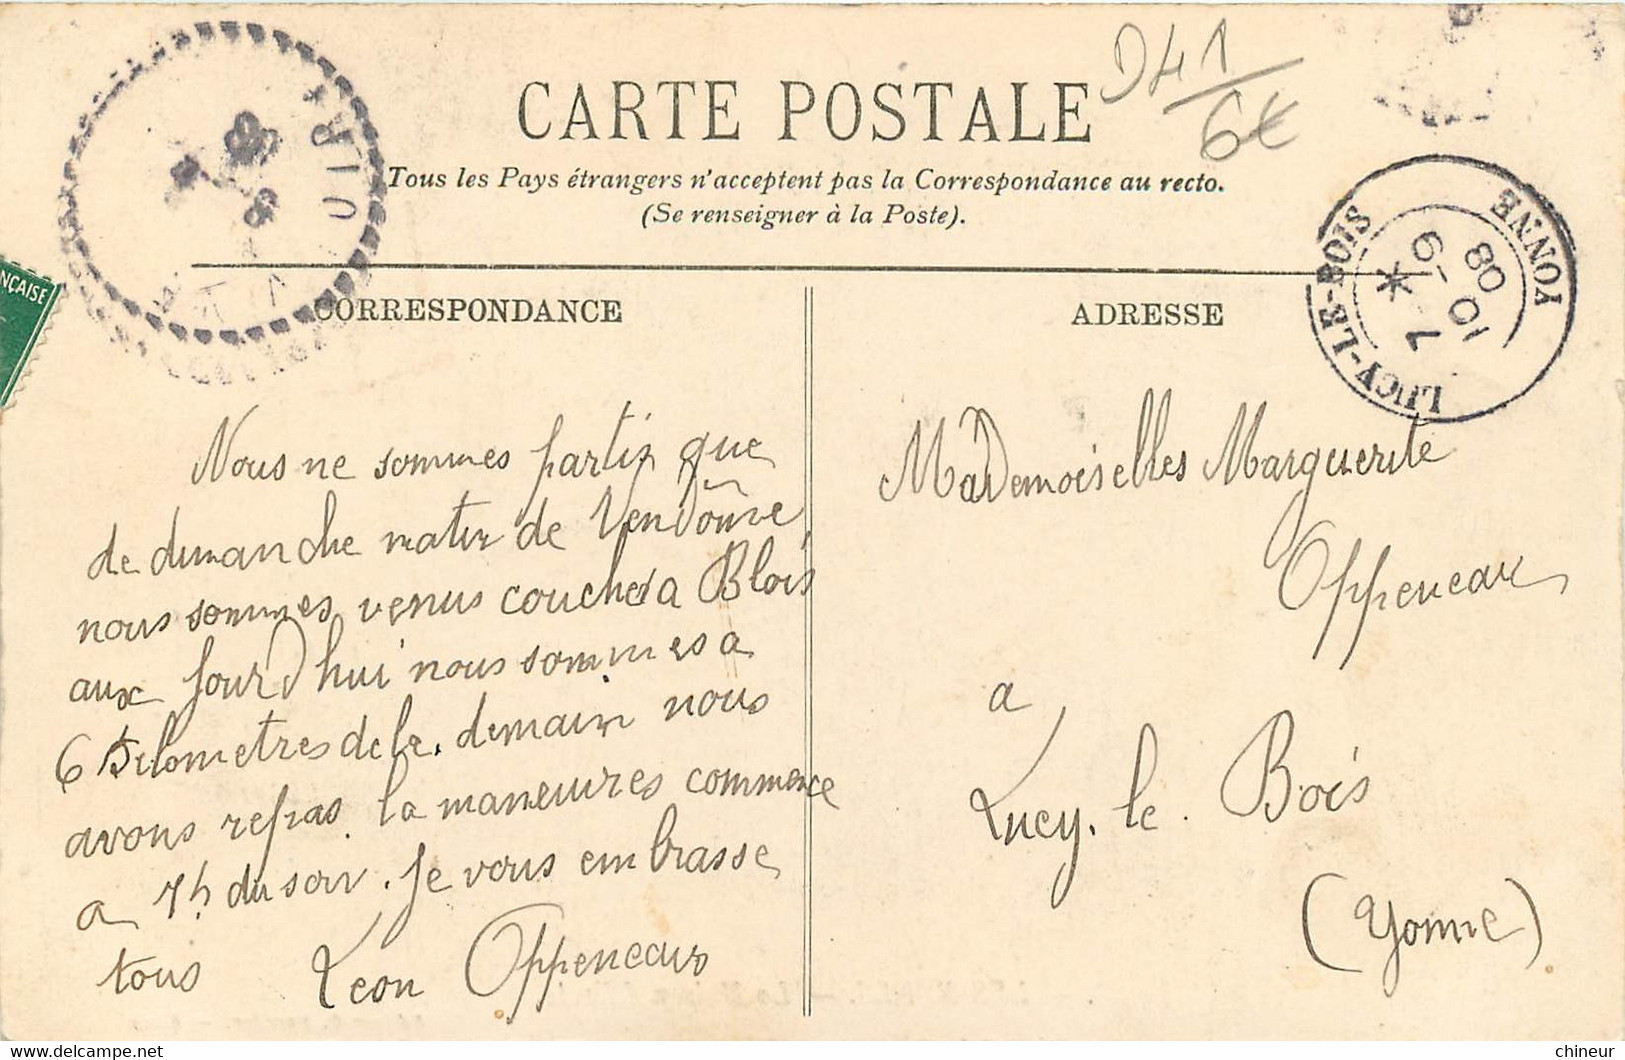 D41
6€
CARTE POSTALE
Tous les Pays étrangers n'acceptent pas la Correspondance au recto.
(Se renseigner à la Poste).
NÇAISE
CORRESPONDANCE
ADRESSE
LUCY-LE-BOIS
YONNE
7 *
10 -9
08
Nous ne sommes partis que
de dimanche matin de Vendôme
nous sommes venus coucher a Blois
aux Jourd'hui nous sommes a
6 Kilometres de la. demain nous
avons repas. la maneuvres commence
a 7h du soir. Je vous embrasse
tous Leon Oppeneau
Mademoiselles Marguerite
Oppeneau
a
Lucy. le. Bois
(Yonne)
chineur